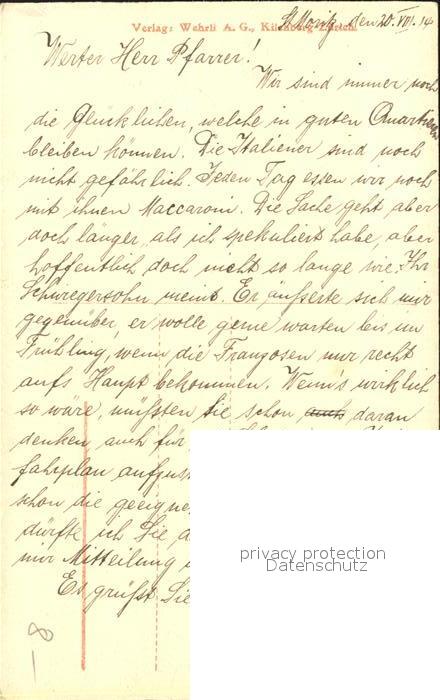 Verlag: Wehrli A. G., Kilchberg-Zürich.
St. Moritz, den 20. VIII. 14
Werter Herr Pfarrer!
Wir sind immer noch
die Glücklichen, welche in guten Quartieren
bleiben können. Die Italiener sind noch
nicht gefährlich. Jeden Tag essen wir noch
mit ihnen Maccaroni. Die Sache geht aber
doch länger, als ich spekuliert habe, aber
hoffentlich doch nicht so lange wie Ihr
Schwiegersohn meint. Er äusserte sich mir
gegenüber, er wolle gerne warten bis im
Frühling, wenn die Franzosen nur recht
aufs Haupt bekommen. Wenn's wirklich
so wäre, müssten Sie schon auch daran
denken auch für
fahrplan
schon die geeigne
dürfte ich Sie
mir Mitteilung
Es grüsst Sie
8
privacy protection
Datenschutz